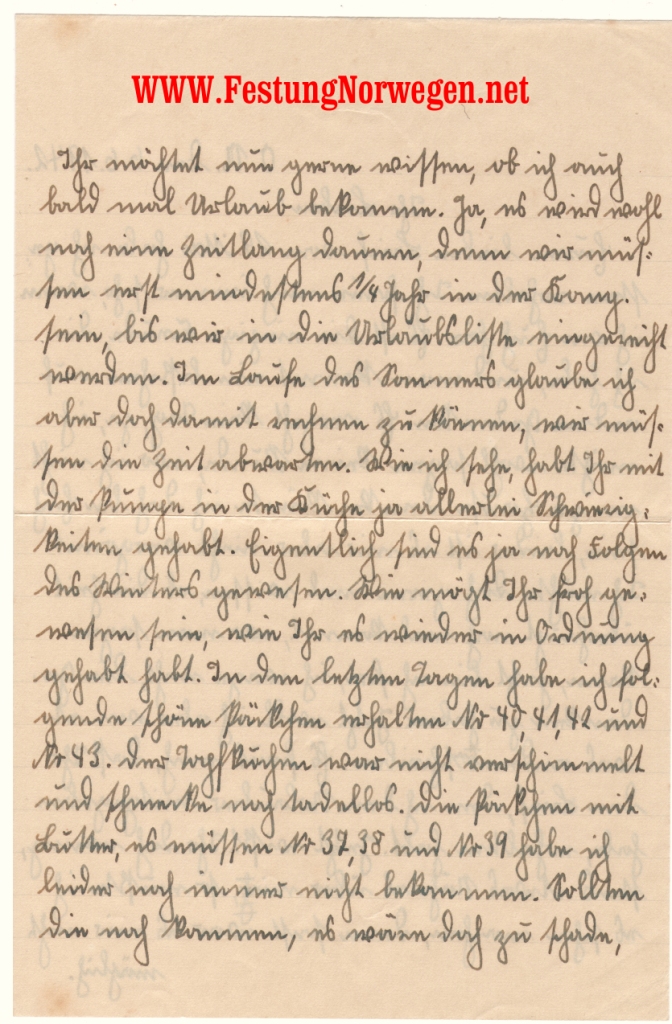 WWW.FestungNorwegen.net
Ihr möchtet nun gerne wissen, ob ich auch
bald mal Urlaub bekomme. Ja, es wird wohl
noch eine Zeitlang dauern, denn wir müs-
sen erst mindestens 1/4 Jahr in der Komp.
sein, bis wir in die Urlaubsliste eingereiht
werden. Im Laufe des Sommers glaube ich
aber doch damit rechnen zu können, wir müs-
sen die Zeit abwarten. Wie ich sehe, habt Ihr mit
der Pumpe in der Küche ja allerlei Schwierig-
keiten gehabt. Eigentlich sind es ja noch Folgen
des Winters gewesen. Wie mögt Ihr froh ge-
wesen sein, wie Ihr es wieder in Ordnung
gehabt habt. In den letzten Tagen habe ich fol-
gende schöne Päckchen erhalten Nr 40, 41, 42 und
Nr 43. Der Topfkuchen war nicht verschimmelt
und schmeckte noch tadellos. Die Päckchen mit
Butter, es müssen Nr 37, 38 und Nr 39 habe ich
leider noch immer nicht bekommen. Sollten
die noch kommen, es wäre doch zu schade,